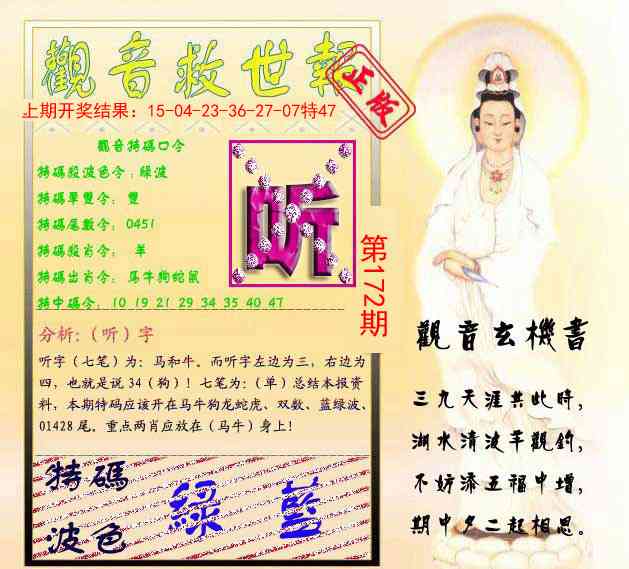 觀音救世報
正版
上期开奖结果：15-04-23-36-27-07特47
觀音特碼口令
特碼殺波色令：綠波
特碼單雙令： 雙
特碼尾數令： 0451
特碼殺肖令： 羊
特碼出肖令： 馬牛狗蛇鼠
特中碼令： 10 19 21 29 34 35 40 47
听
第172期
分析：（听）字
听字（七笔）为：马和牛。而听字左边为三，右边为
四，也就是说 34（狗）！七笔为：（单）总结本报资
料，本期特码应该开在马牛狗龙蛇虎、双数、蓝绿波、
01428 尾。重点两肖应放在（马牛）身上！
特碼
波色
綠 藍
觀音玄機書
三九天涯共此時，
湖水清波羊觀釣，
不妨添五福中增，
期中夕二起相思。